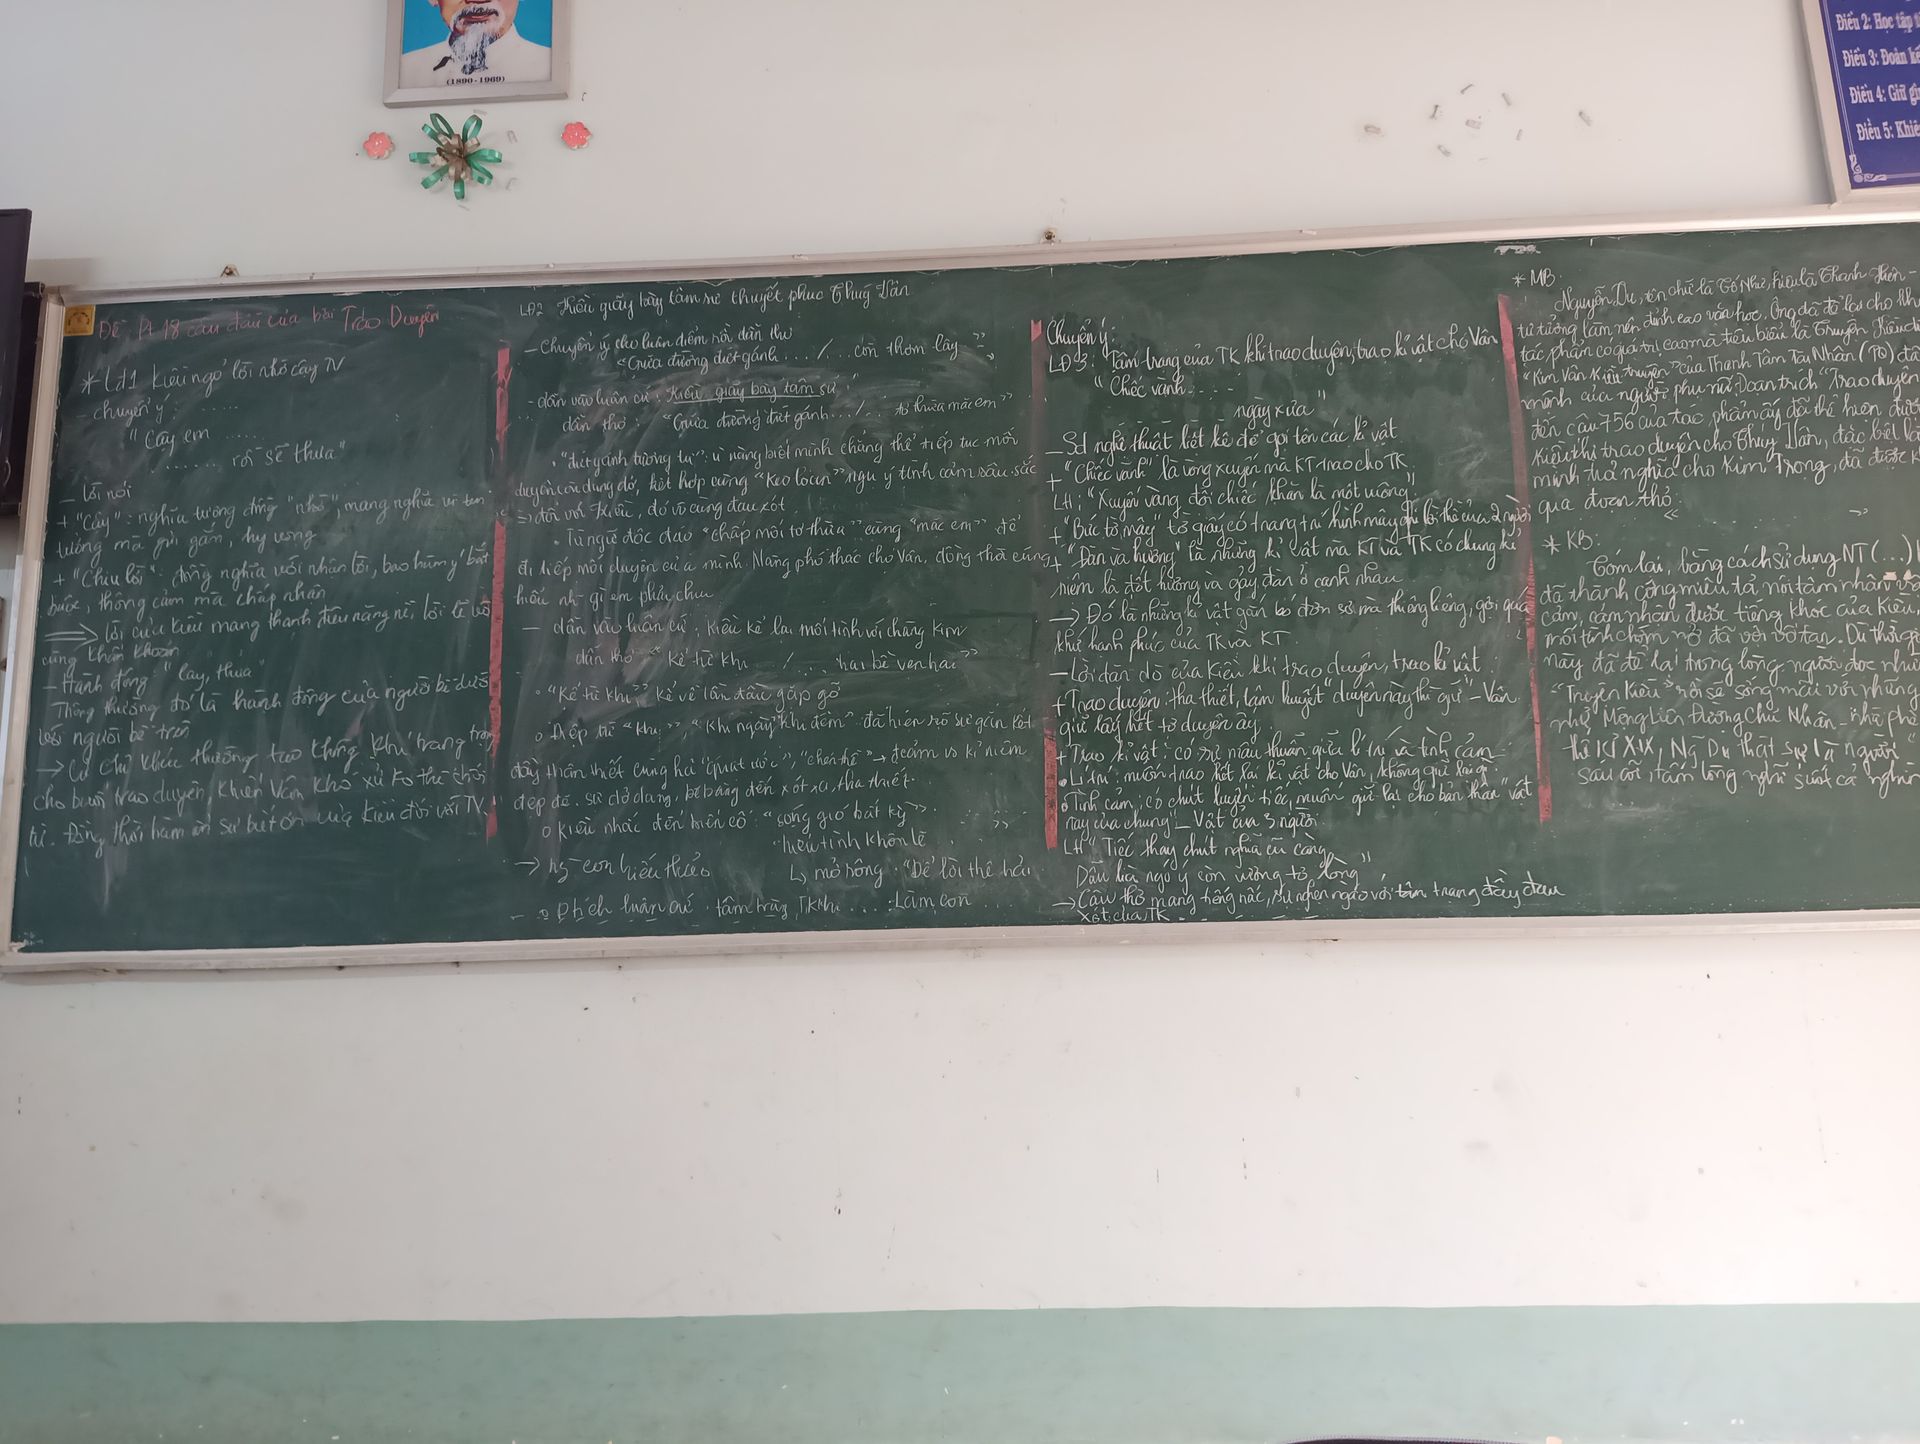 (1890-1969)
Điều 2: Học tập
Điều 3: Đoàn kế
Điều 4: Giữ gì
Điều 5: Khiê
Đề: Pt 18 câu đầu của bài Trao Duyên
* LĐ1 Kiều ngỏ lời nhờ cậy TV
- chuyển ý: ......
" Cậy em ......
....... rồi sẽ thưa"
- lời nói
+ "Cậy": nghĩa tương đồng "nhờ", mang nghĩa vì tin
tưởng mà gửi gắm, hy vọng
+ "Chịu lời": đồng nghĩa với nhận lời, bao hàm ý bắt
buộc, thông cảm mà chấp nhận
⇒ lời của Kiều mang thanh điệu nặng nề, lời lẽ vô
cùng khẩn khoản
- Hành động: "lạy, thưa"
Thông thường đó là hành động của người bề dưới
với người bề trên
→ Cử chỉ khác thường tạo không khí trang trọng
cho buổi trao duyên, khiến Vân khó xử ko thể chối
từ. Đồng thời hàm ơn sự biết ơn của Kiều đối với TV
LĐ2 Kiều giãi bày tâm sự thuyết phục Thuý Vân
- Chuyển ý cho luận điểm rồi dẫn thơ
"Giữa đường đứt gánh ..../.... còn thơm lây"
- dẫn vào luận cứ: Kiều giãi bày tâm sự
dẫn thơ: "Giữa đường đứt gánh .../... tơ thừa mặc em"
• "đứt gánh tương tư": ví nàng biết mình chẳng thể tiếp tục mối
duyên còn dang dở, kết hợp cùng "keo loan" ngụ ý tình cảm sâu sắc
⇒ đối với Kiều, đó vô cùng đau xót
• Từ ngữ độc đáo "chắp mối tơ thừa" cùng "mặc em" để
đi tiếp mối duyên của mình. Nàng phó thác cho Vân, đồng thời cũng
hiểu những gì em phải chịu
- dẫn vào luận cứ: Kiều kể lại mối tình với chàng Kim
dẫn thơ "Kể từ khi ..../.... hai bề vẹn hai"
• "Kể từ khi" kể về lần đầu gặp gỡ
• Điệp từ "khi", "Khi ngày, khi đêm" đã hiện rõ sự gắn kết
đầy thân thiết cùng h/a "quạt ước", "chén thề" → t/cảm vs kỉ niệm
đẹp đẽ, sự dở dang, bẽ bàng đến xót xa, tha thiết
o Kiều nhắc đến biến cố: "sóng gió bất kỳ"
"hiếu tình khôn lẽ .... "
→ ng con hiếu thảo
↳ mở rộng: "Để lời thệ hải
... Làm con
Chuyển ý:
LĐ 3: Tâm trạng của TK khi trao duyên, trao kỉ vật cho Vân
" Chiếc vành ....
ngày xưa"
- Sd nghệ thuật liệt kê để gọi tên các kỉ vật
+ "Chiếc vành" là vòng xuyến mà KT trao cho TK
LH: "Xuyến vàng đôi chiếc khăn là một vuông"
+ "Bức tờ mây" tờ giấy có trang trí hình mây ghi lời thề của 2 người
+ "Đàn và hương" là những kỉ vật mà KT và TK có chung kỉ
niệm là đốt hương và gảy đàn ở cạnh nhau
→ Đó là những kỉ vật gắn bó đơn sơ mà thiêng liêng, gợi quá
khứ hạnh phúc của TK và KT
- Lời dặn dò của Kiều khi trao duyên, trao kỉ vật
+ Trao duyên: tha thiết, tâm huyết "duyên này thì giữ" - Vân
giữ lấy hết tơ duyên ấy
+ Trao kỉ vật: có sự mâu thuẫn giữa lí trí và tình cảm
• Lí trí: muốn trao hết lại kỉ vật cho Vân, không giữ lại gì
• Tình cảm: có chút luyến tiếc, muốn giữ lại cho bản thân "vật
này của chung" - Vật của 3 người
LH "Tiếc thay chút nghĩa cũ càng
Dẫu lìa ngó ý còn vương tơ lòng"
→ Câu thơ mang tiếng nấc, sự nghẹn ngào với tâm trạng đầy đau
xót của TK
* MB:
Nguyễn Du, tên chữ là Tố Như, hiệu là Thanh Hiên -
tư tưởng làm nên đỉnh cao văn học. Ông đã để lại cho
tác phẩm có giá trị cao mà tiêu biểu là Truyện Kiều
"Kim Vân Kiều truyện" của Thanh Tâm Tài Nhân (TQ) đã
mệnh của người phụ nữ. Đoạn trích "Trao duyên
đến câu 756 của tác phẩm ấy đã thể hiện được
Kiều khi trao duyên cho Thúy Vân, đặc biệt là
mình trả nghĩa cho Kim Trọng, đã được
qua đoạn thơ:
" "
* KB:
Tóm lại, bằng cách sử dụng NT (...)
đã thành công miêu tả nội tâm nhân vật
cảm, cảm nhận được tiếng khóc của Kiều,
mối tình chớm nở đã vội vỡ tan. Dù thời gian
này đã để lại trong lòng người đọc
"Truyện Kiều" rồi sẽ sống mãi với những
như Mộng Liên Đường Chủ Nhân - nhà phê
thế kỉ XIX, Ng Du thật sự là người "
sáu cõi, tấm lòng nghĩ suốt cả nghìn